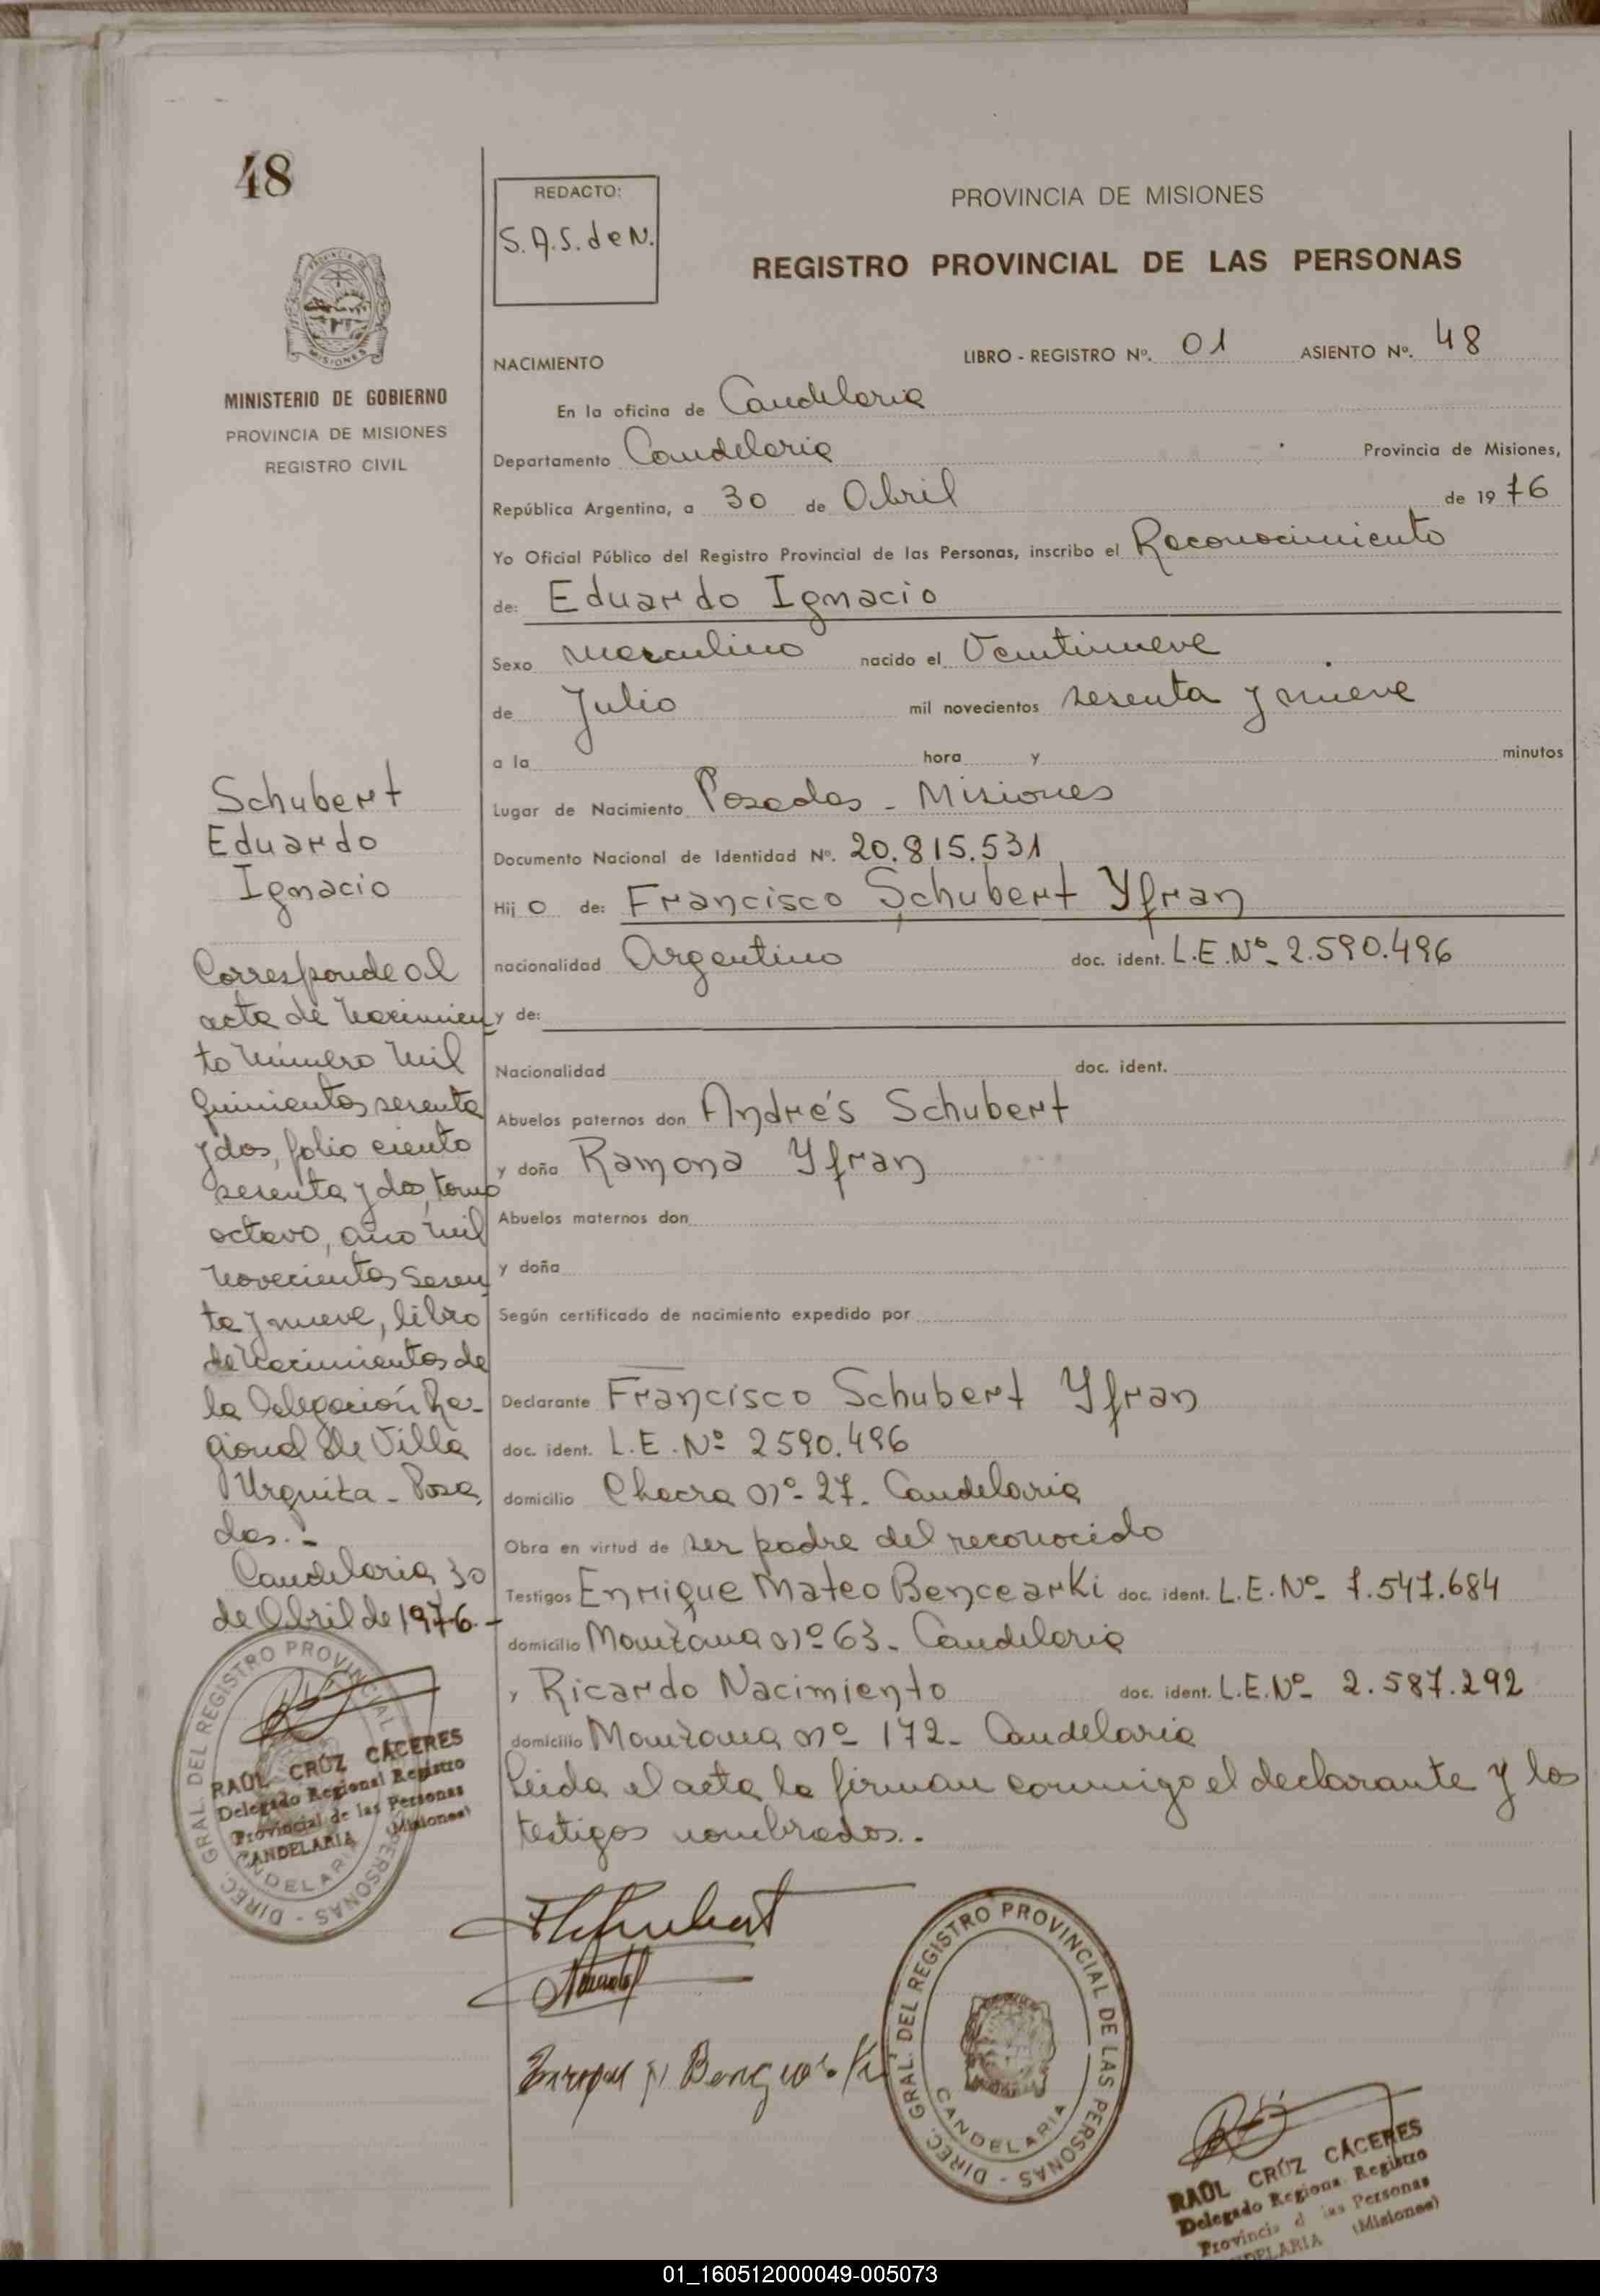 48
REDACTO:
S.A.S. de N.
PROVINCIA DE MISIONES
REGISTRO PROVINCIAL DE LAS PERSONAS
MINISTERIO DE GOBIERNO
PROVINCIA DE MISIONES
REGISTRO CIVIL
NACIMIENTO LIBRO - REGISTRO Nº. 01 ASIENTO Nº. 48
En la oficina de Candelaria
Departamento Candelaria Provincia de Misiones,
República Argentina, a 30 de Abril de 1976
Yo Oficial Público del Registro Provincial de las Personas, inscribo el Reconocimiento
de: Eduardo Ignacio
Sexo masculino nacido el Veintinueve
de Julio mil novecientos sesenta y nueve
a la hora y minutos
Lugar de Nacimiento Posadas - Misiones
Documento Nacional de Identidad Nº. 20.815.531
Hijo de: Francisco Schubert Yfran
nacionalidad Argentino doc. ident. L.E.Nº- 2.590.496
y de:
Nacionalidad doc. ident.
Abuelos paternos don Andrés Schubert
y doña Ramona Yfran
Abuelos maternos don
y doña
Según certificado de nacimiento expedido por
Declarante Francisco Schubert Yfran
doc. ident. L.E. Nº 2590.496
domicilio Chacra nº- 27. Candelaria
Obra en virtud de ser padre del reconocido
Testigos Enrique Mateo Bencearki doc. ident. L.E.Nº- 7.547.684
domicilio Manzana nº 63- Candelaria
y Ricardo Nacimiento doc. ident. L.E.Nº- 2.587.292
domicilio Manzana nº- 172- Candelaria
Leida el acta la firman conmigo el declarante y los
testigos nombrados.-
Schubert
Eduardo
Ignacio
Corresponde al
acta de Nacimien
to número mil
quinientos sesenta
y dos, folio ciento
sesenta y dos, tomo
octavo, año mil
novecientos sesen
ta y nueve, libro
de Nacimientos de
la Delegación Re-
gional de Villa
Urquiza - Posa
das.-
Candelaria, 30
de Abril de 1976.-
DIREC. GRAL. DEL REGISTRO PROVINCIAL PERSONAS
RAÚL CRÚZ CÁCERES
Delegado Regional Registro
Provincial de las Personas
CANDELARIA (Misiones)
DIREC. GRAL. DEL REGISTRO PROVINCIAL DE LAS PERSONAS
CANDELARIA
RAÚL CRÚZ CÁCERES
Delegado Regiona Registro
Provincia d las Personas
NDELARIA (Misiones)
01_160512000049-005073